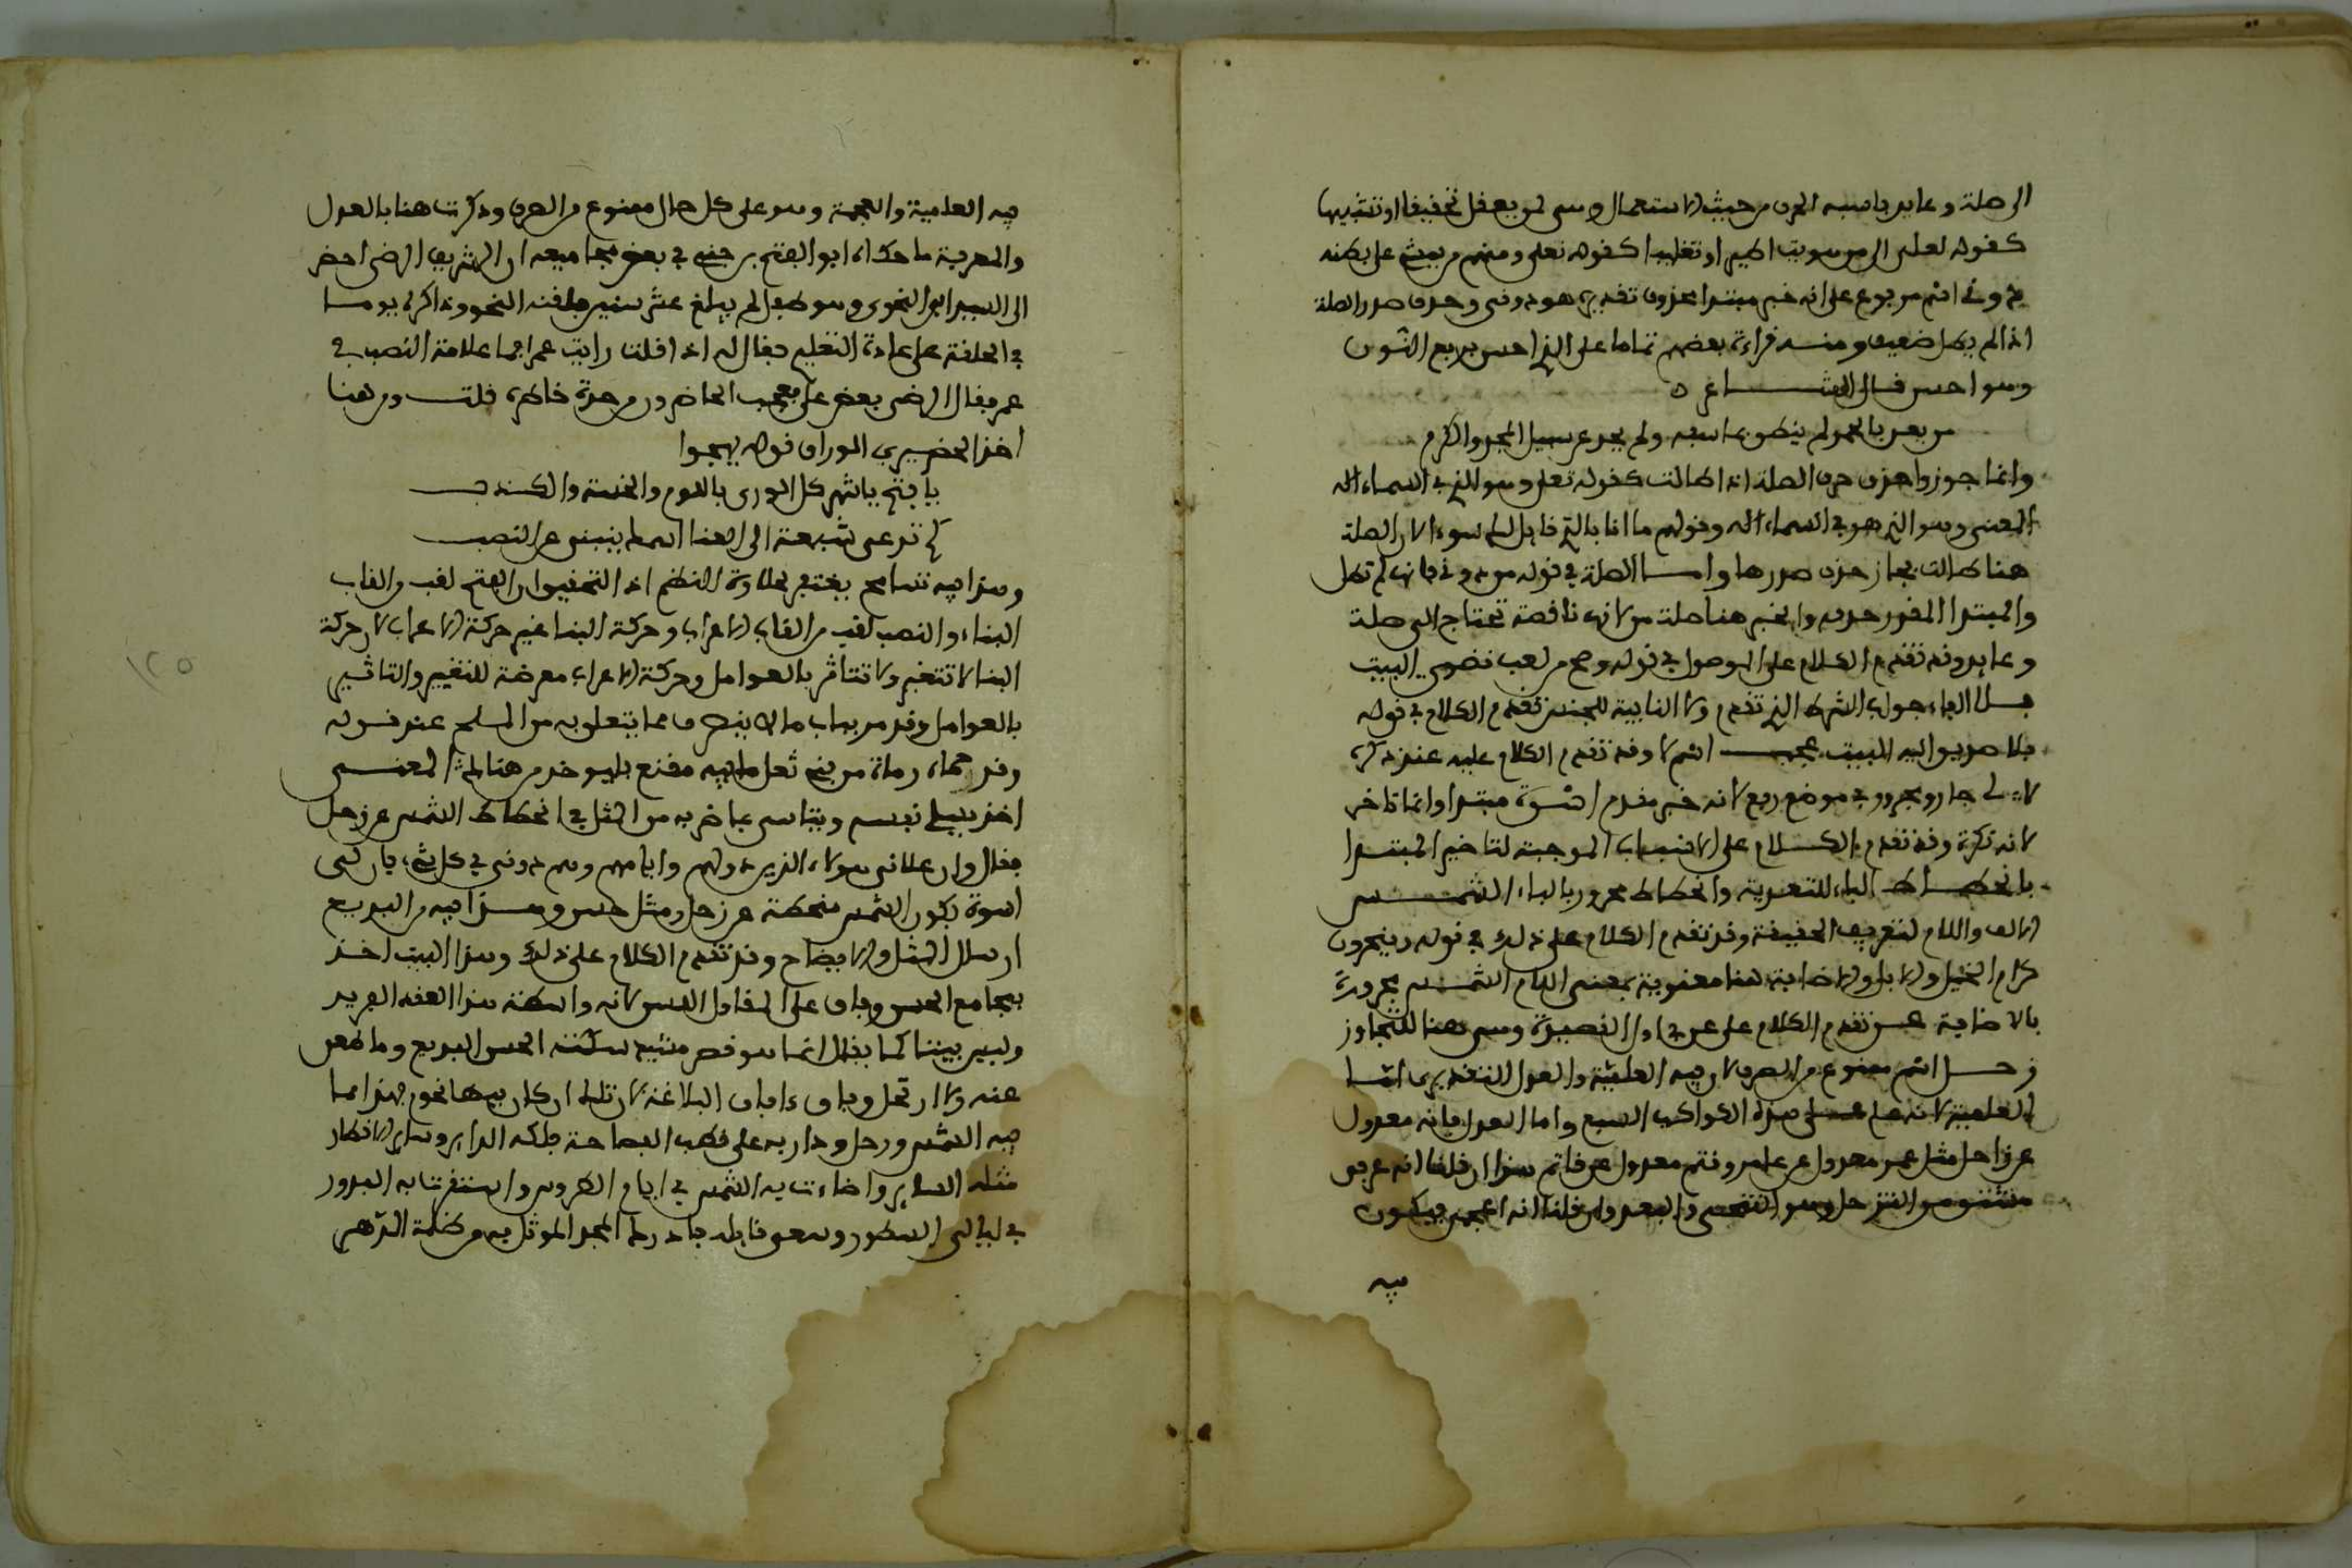 الى صلة وعايد فاشبه الحرف من حيث الاستعمال وهي لمن يعقل تحقيقا او تشبيها
كقوله لعلى الى من هويت اطير او تغليبا كقوله تعلى ومنهم من يمشي على بطنه
دوني اسم مرفوع على انه خبر مبتدا محذوف تقديره هو دوني وحذف صدر الصلة
اذا لم يطل ضعيف ومنه قراءة بعضهم تماما على الذي احسن برفع النون
وهو احسن قال الشاعر
من يعن بالحمد لم ينطق بما سفه ولم يحد عن سبيل المجد والكرم
وانما جوزوا حذف صدر الصلة اذا طالت كقوله تعلى وهو الذي في السماء اله
المعنى وهو الذي هو في السماء اله وقولهم ما انا بالذي قايل لك سوءا لان الصلة
هنا طالت فجاز حذف صدرها واما الصلة في قوله من دوني فانها لم تطل
والمبتدا المقدر حذفه والخبر هنا صلة من لانها ناقصة تحتاج الى صلة
وعايد وقد تقدم الكلام على الموصول في قوله وضج من لغب نضوي البيت
فلا الفاء جواب الشرط الذي تقدم ولا النافية للجنس تقدم الكلام في قوله
فلا صديق اليه البيت عجب اسم لا وقد تقدم الكلام عليه عند ذكره
لي جار ومجرور في موضع رفع لانه خبر مقدم اسوة مبتدا وانما تاخر
لانه نكرة وقد تقدم الكلام على الاسباب الموجبة لتاخير المبتدا
بانحطاط الباء للتعدية وانحطاط مجرور بالباء الشمس
الالف واللام لتعريف الحقيقة وقد تقدم الكلام على ذلك في قوله وينحرون
كرام الخيل والابل والاضافة هنا معنوية بمعنى اللام الشمس مجرورة
بالاضافة عن تقدم الكلام على عن في اول القصيدة وهي هنا للتجاوز
زحل اسم ممنوع من الصرف لان فيه العلمية والعدل التقديري اما
العلمية لانه علم على هذه الكواكب السبع واما العدل فانه معدول
عن زاحل مثل عمر معدول عن عامر وقثم معدول عن قاثم هذا ان قلنا انه عربي
مشتق من التزحل وهو التنحي والبعد وان قلنا انه اعجمي فيكون
فيه
فيه العلمية والعجمة وهو على كل حال ممنوع من الصرف وذكرت هنا بالعدل
والمعرفة ما حكاه ابو الفتح بن جني في بعض مجاميعه ان الشريف الرضي احضر
الى السيرافي النحوي وهو طفل لم يبلغ عشر سنين فلقنه النحو وذاكره يوما
في الحلقة على عادة التعليم فقال له اذا قلنا رايت عمر فما علامة النصب في
عمر فقال الرضي بغض علي فعجب الحاضرون من حدة خاطره قلت ومن هنا
اخذ الحضيري الوراق قوله يهجوا
يا فتح يا اشهر كل الورى باللوم والخسة والكذب
كم تدعي شيعة ال العبا اسمك ينبئني عن النصب
وهذا فيه تسامح يغتفر لحلاوة النظم اذ التحقيق ان الفتح لقب من القاب
البناء والنصب لقب من القاب الاعراب وحركة البنا غير حركة الاعراب لان حركة
البنا لا تتغير ولا تتاثر بالعوامل وحركة الاعراب معرضة للتغيير والتاثير
بالعوامل وقد مر بباب ما لا ينصرف مما يتعلق به من الملح عند قوله
وقد حماه رماة من بني ثعل ما فيه مقنع فليوخذ من هناك المعنى
اخذ يسلي نفسه ويتاسى بما ضربه من المثل في انحطاط الشمس عن زحل
فقال وان علاني هولاء الذين دولهم وايامهم وهم دوني في كل شيء فان لي
اسوة بكون الشمس منحطة عن زحل ومثل حسن وهذا فيه من البديع
ارسال المثل والايضاح وقد تقدم الكلام على ذلك وهذا البيت اخذ
بمجامع الحسن وفاق على المقاول اللسن لانه واسطة هذا العقد الفريد
وليس بيتا كما يقال انما هو قصر مشيد سكنه الحسن البديع وما ظعن
عنه ولا ارتحل وفاق ءافاق البلاغة لان تلك ان كان فيها نجوم فهذا مما
فيه الشمس وزحل ودار به على قطب الفصاحة فلكه الداير وسار في الاقطار
مثله الساير واضاءت به الشمس في ايام الطروس واستقرت به البدور
في ليالي السطور وسعى قايله فادرك المجد الموثل به من ظلمة الدهر
١٢٥